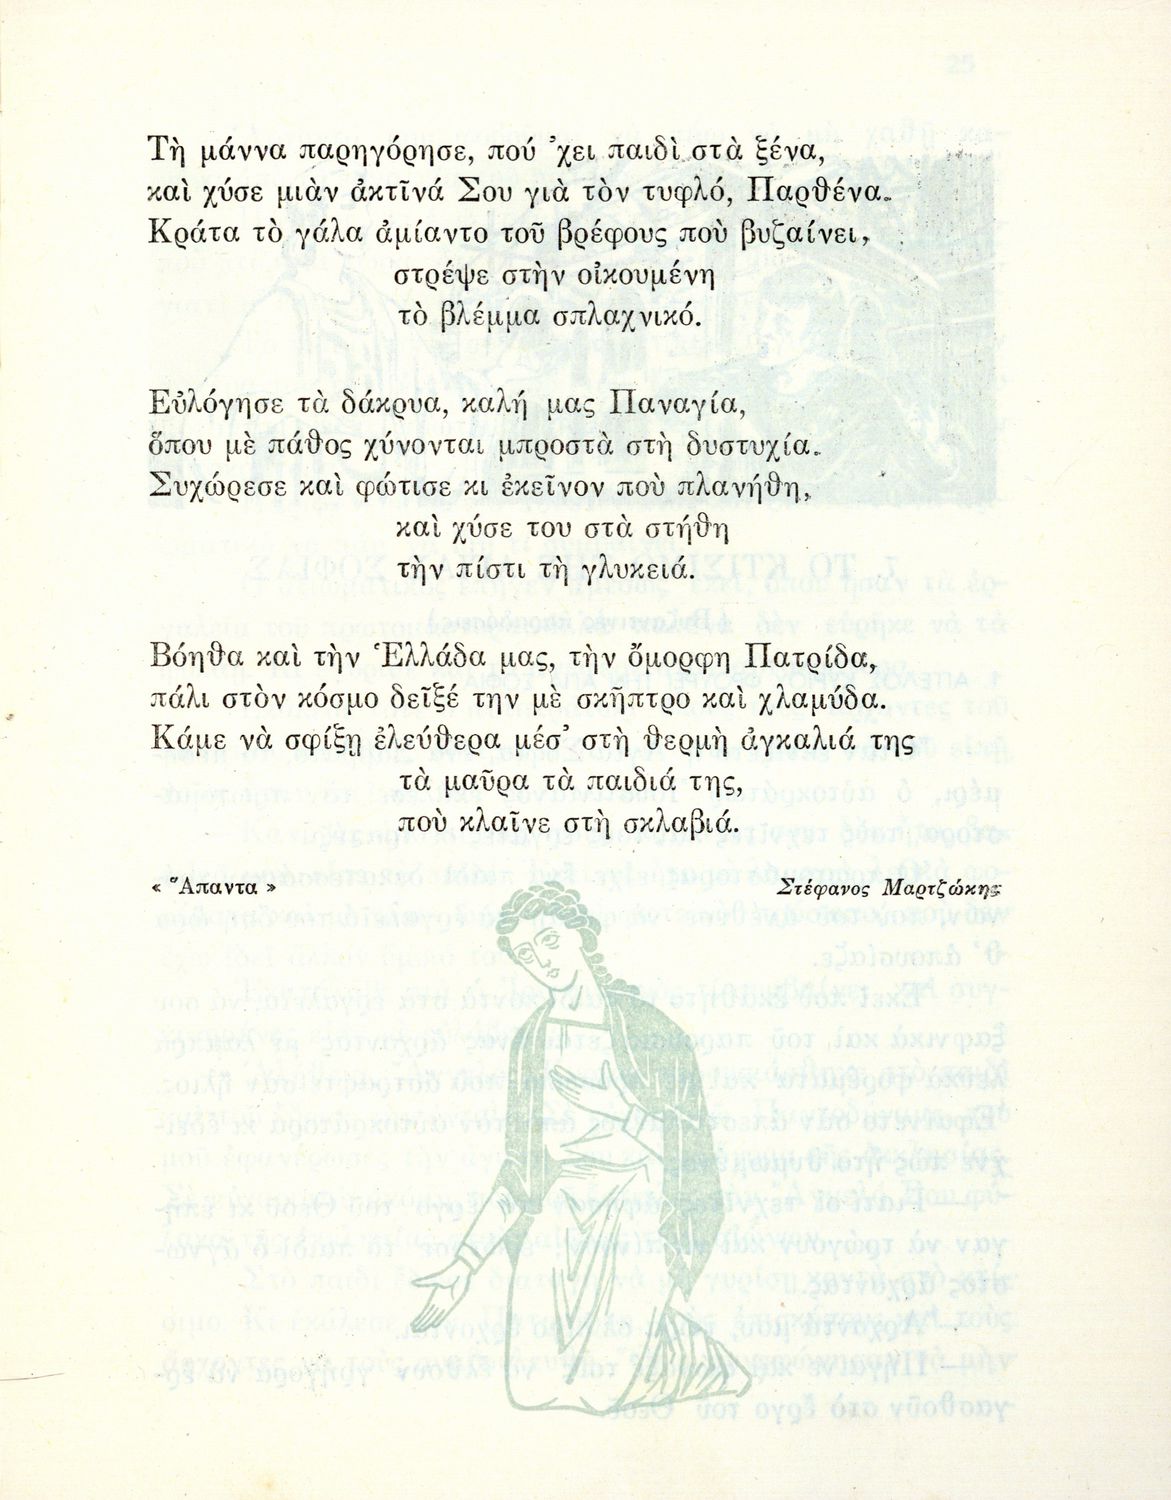 Τὴ μάννα παρηγόρησε, πού ᾽χει παιδὶ στὰ ξένα,
καὶ χύσε μιὰν ἀκτῖνά Σου γιὰ τὸν τυφλό, Παρθένα.
Κράτα τὸ γάλα ἀμίαντο τοῦ βρέφους ποὺ βυζαίνει,
στρέψε στὴν οἰκουμένη
τὸ βλέμμα σπλαχνικό.
Εὐλόγησε τὰ δάκρυα, καλή μας Παναγία,
ὅπου μὲ πάθος χύνονται μπροστὰ στὴ δυστυχία.
Συχώρεσε καὶ φώτισε κι ἐκεῖνον ποὺ πλανήθη,
καὶ χύσε του στὰ στήθη
τὴν πίστι τὴ γλυκειά.
Βόηθα καὶ τὴν Ἑλλάδα μας, τὴν ὄμορφη Πατρίδα,
πάλι στὸν κόσμο δεῖξέ την μὲ σκῆπτρο καὶ χλαμύδα.
Κάμε νὰ σφίξῃ ἐλεύθερα μέσ᾽ στὴ θερμὴ ἀγκαλιά της
τὰ μαῦρα τὰ παιδιά της,
ποὺ κλαῖνε στὴ σκλαβιά.
« Ἅπαντα » Στέφανος Μαρτζώκης